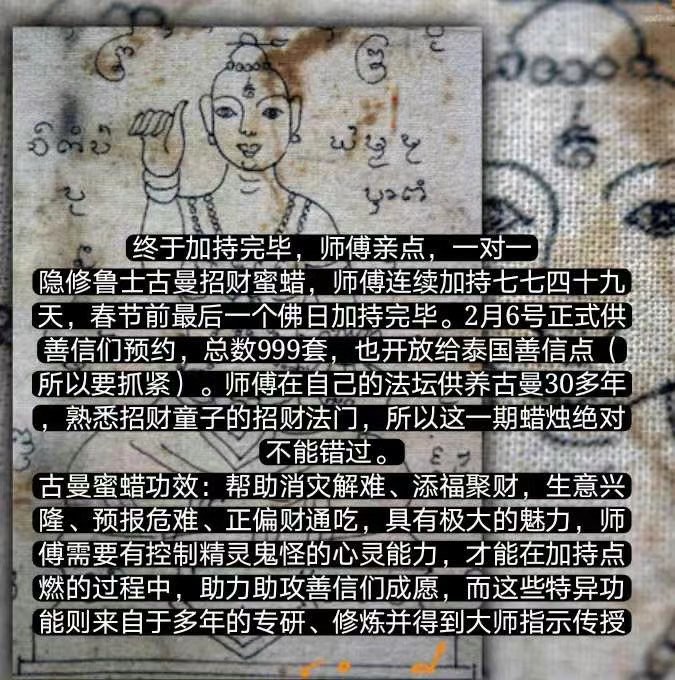 终于加持完毕，师傅亲点，一对一
隐修鲁士古曼招财蜜蜡，师傅连续加持七七四十九
天，春节前最后一个佛日加持完毕。2月6号正式供
善信们预约，总数999套，也开放给泰国善信点（
所以要抓紧）。师傅在自己的法坛供养古曼30多年
，熟悉招财童子的招财法门，所以这一期蜡烛绝对
不能错过。
古曼蜜蜡功效：帮助消灾解难、添福聚财，生意兴
隆、预报危难、正偏财通吃，具有极大的魅力，师
傅需要有控制精灵鬼怪的心灵能力，才能在加持点
燃的过程中，助力助攻善信们成愿，而这些特异功
能则来自于多年的专研、修炼并得到大师指示传授